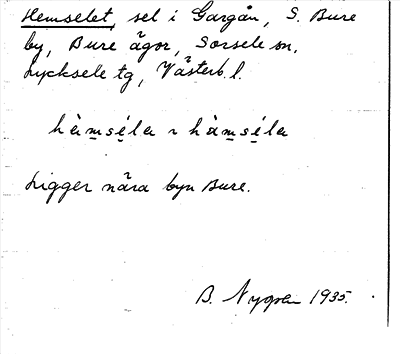 Hemselet, sel i Gargån, S. Bure
by, Bure ägor, Sorsele sn,
Lycksele tg, Västerb. l.
hà̀m̱sé̱la ~ hàm̱sé̱la
Ligger nära byn Bure.
B. Nygren 1935.